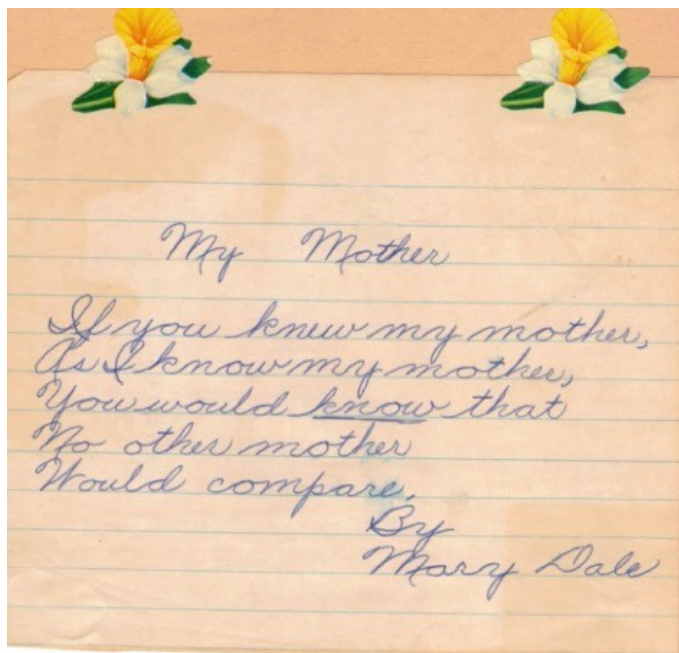 My Mother
If you knew my mother,
As I know my mother,
You would know that
No other mother
Would compare.
By
Mary Dale